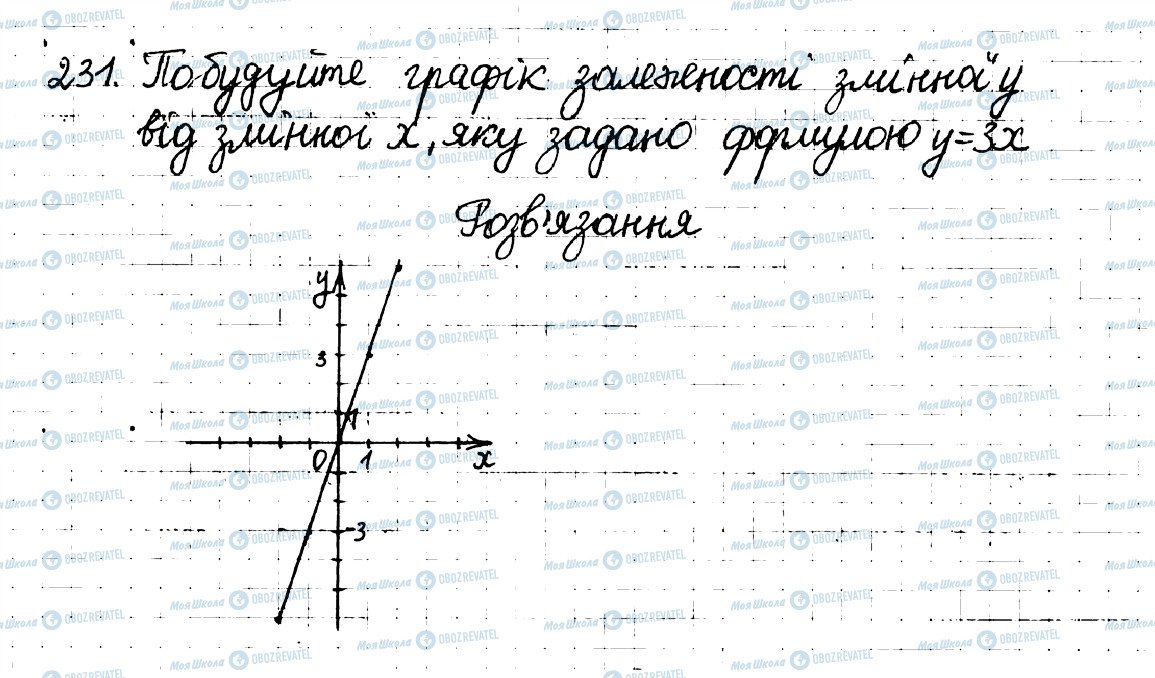 231. Побудуйте графік залежності змінної у
від змінної х, яку задано формулою у=3х
Розв'язання
у
3
1
0 1 х
-3
МояШкола OBOZREVATEL